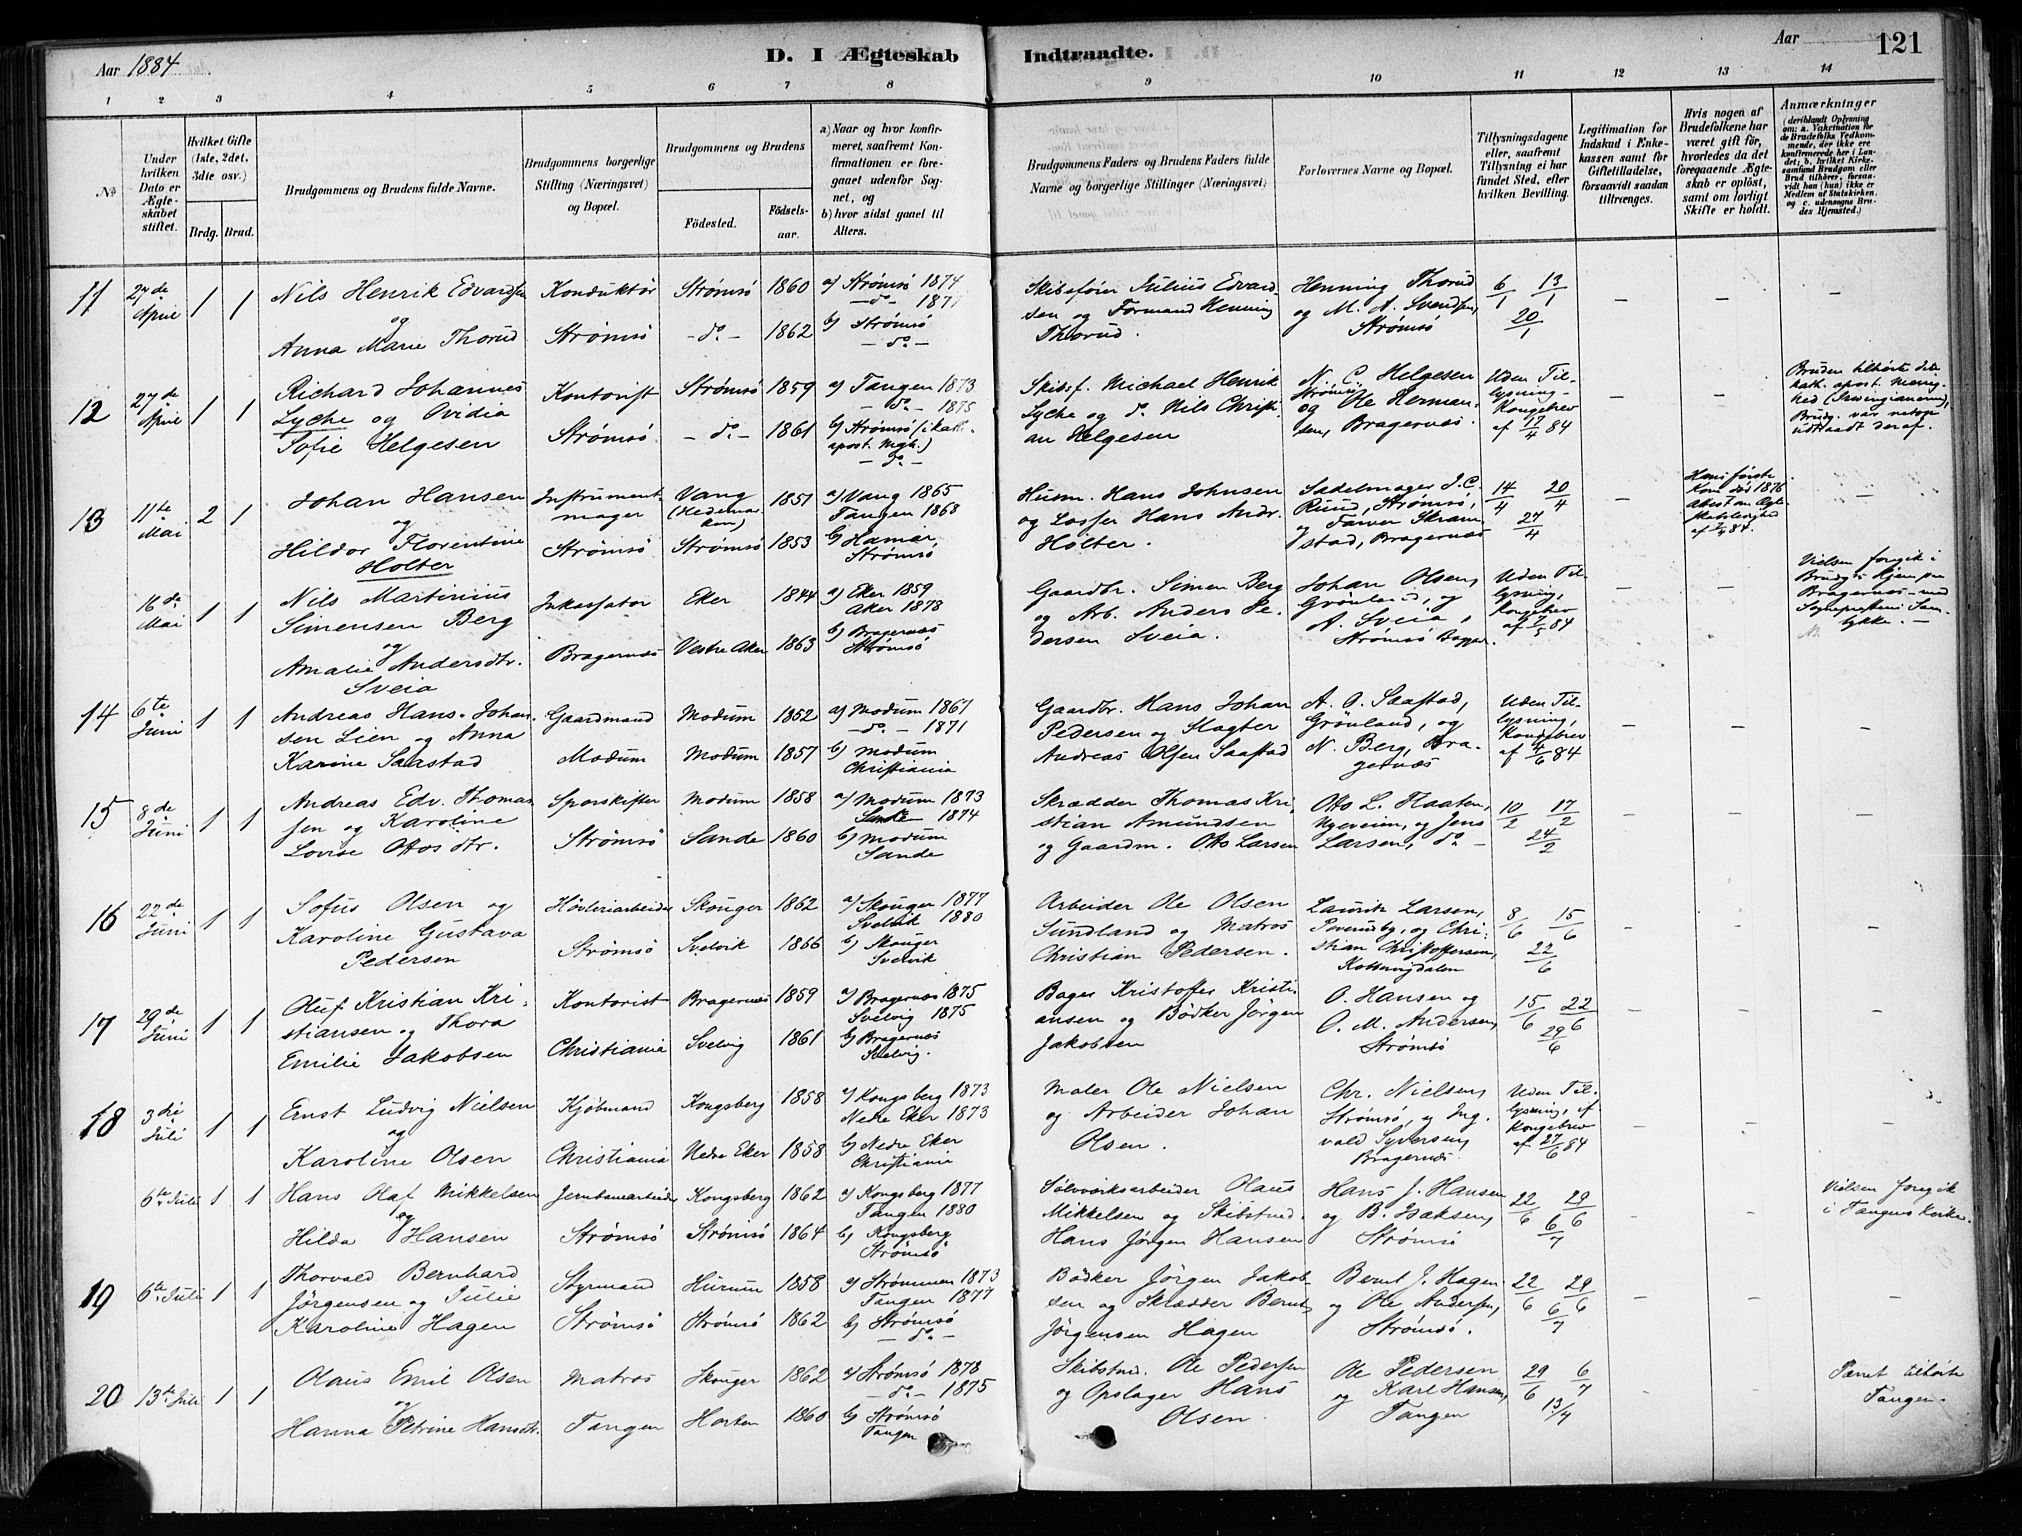 Aar 1884
D. I Ægteskab Indtraadte.
Aar
121
1 2 3 4 5 6 7 8 9 10 11 12 13 14
No
Under hvilken Dato er Ægteskabet stiftet.
Hvilket Gifte (1ste, 2det, 3die osv.)
Brdg. Brud.
Brudgommens og Brudens fulde Navne.
Brudgommens borgerlige Stilling (Næringsvei) og Bopæl.
Brudgommens og Brudens
Födested.
Födselsaar.
a) Naar og hvor konfirmeret, saafremt Konfirmationen er foregaaet udenfor Sognet, og
b) hvor sidst gaaet til Alters.
Brudgommens Faders og Brudens Faders fulde Navne og borgerlige Stillinger (Næringsvei)
Forlovernes Navne og Bopæl.
Tillysningsdagene eller, saafremt Tillysning ei har fundet Sted, efter hvilken Bevilling.
Legitimation for Indskud i Enkekassen samt for Giftetilladelse, forsaavidt saadan tiltrænges.
Hvis nogen af Brudefolkene har været gift før, hvorledes da det foregaaende Ægteskab er oplöst, samt om lovligt Skifte er holdt.
Anmærkninger (deriblandt Oplysning om: a. Vakcination for de Brudefolks Vedkommende, der ikke ere konfirmerede her i Landet; b. hvilket Kirkesamfund Brudgom eller Brud tilhörer, forsaavidt han (hun) ikke er Medlem af Statskirken. og c. udensogns Brudes Hjemsted.)
11 27de April 1 1 Nils Henrik Edvardsen og Anna Marie Thorud
Konduktör Strömsö
Strömsö 1860
-do- 1862
a) Strömsö 1874
-do- 1877
b) Strömsö
-do-
Skibsförer Julius Edvardsen og Formand Henning Thorud.
Henning Thorud og M. A. Svendsen, Strömsö
6/1 13/1 20/1
- - -
12 27de April 1 1 Richard Johannes Lyche og Ovidia Sofie Helgesen
Kontorist Strömsö
Strömsö 1859
-do- 1861
a) Tangen 1873
-do- 1875
b) Strömsö (i kath. apost. Mgh.)
-do-
Skibsf. Michael Henrik Lyche og do. Nils Christian Helgesen
N. C. Helgesen Strömsö og Ole Hermansen, Bragernæs.
Uden Tillysning - Kongebrev af 17/4 84
- -
Bruden tilhörte den kath. apost. Menighed (Irvingianerne), Brudg. var netop udtraadt deraf.
13 11te Mai 2 1 Johan Hansen og Hildor Florentine Holter
Instrumentmager Strömsö
Vang (Hedemarken) 1851
Strömsö 1853
a) Vang 1865
Tangen 1868
b) Hamar,
Strömsö
Husm. Hans Johnsen og Losser Hans Andr. Holter.
Sadelmager J. C. Ruud, Strömsö, og Farver Skramstad, Bragernæs
14/4 20/4 27/4
-
Hans förste Kone död 1876 af
-
16de Mai 1 1 Nils Martinius Simensen Berg og Amalie Andersdtr. Sveia
Inkassator Bragernæs
Eker 1844
Vestre Aker 1863
a) Eker 1859
Aker 1878
b) Bragernæs
Strömsö
Gaardbr. Simen Berg og Arb. Anders Pedersen Sveia.
Johan Olsen, Grönland, og A. Sveia, Strömsö
Uden Tillysning, Kongebrev af 7/5 84
- -
Vielsen foregik i Brudg's Hjem paa Bragernæs - med Sognepræstens Samtykke. -
14 6te Juni 1 1 Andreas Hans. Johansen Lien og Anna Karine Saastad
Gaardmand Modum
Modum 1852
Modum 1857
a) Modum 1867
-do- 1871
b) Modum
Christiania
Gaardbr. Hans Johan Pedersen og Slagter Andreas Olsen Saastad
A. O. Saastad, Grönland, og N. Berg, Bragernæs
Uden Tillysning, Kongebrev af 4/6 84
- - -
15 8de Juni 1 1 Andreas Edv. Thomassen og Karoline Lovise Ottosdtr.
Sporskifter Strömsö
Modum 1858
Sande 1860
a) Modum 1873
Sande 1874
b) Modum
Sande
Skrædder Thomas Kristian Amundsen og Gaardm. Otto Larsen
Otto L. Haaten, og Jens Larsen, do -
10/2 17/2 24/2
- - -
16 22de Juni 1 1 Sofus Olsen og Karoline Gustava Pedersen
Hövleriarbeider Strömsö
Skouger 1862
Svelvik 1866
a) Skouger 1877
Svelvik 1880
b) Skouger
Svelvik
Arbeider Ole Olsen Sundland og Matros Christian Pedersen.
Lauritz Larsen, og Christian Christoffersen,
8/6 15/6 22/6
- - -
17 29de Juni 1 1 Oluf Kristian Kristiansen og Thora Emilie Jakobsen
Kontorist Christiania
Bragernæs 1859
Svelvig 1861
a) Bragernæs 1875
Svelvig 1875
b) Bragernæs
Svelvig.
Bager Kristoffer Kristiansen og Bödker Jörgen Jakobsen
O. Hansen og O. M. Andersen, Strömsö
15/6 22/6 29/6
- - -
18 3die Juli 1 1 Ernst Ludvig Nielsen og Karoline Olsen
Kjöbmand Christiania
Kongsberg 1858
Nedre Eker 1858
a) Kongsberg 1873
Nedre Eker 1873
b) Nedre Eker
Christiania
Maler Ole Nielsen og Arbeider Johan Olsen.
Chr. Nielsen, Strömsö, og Ingvald Syversen, Bragernæs
Uden Tillysning, Kongebrev af 27/6 84
- - -
6te Juli 1 1 Hans Olaf Mikkelsen og Hilda Hansen
Jernbanearbeider Strömsö
Kongsberg 1862
Strömsö 1864
a) Kongsberg 1877
Tangen 1880
b) Kongsberg
Strömsö
Sölvverksarbeider Olaus Mikkelsen og Skibstmd. Hans Jörgen Hansen
Hans J. Hansen og B. Isaksen, Strömsö
22/6 29/6 6/7
- -
Vielsen foregik i Tangens Kirke.
19 6te Juli 1 1 Thorvald Bernhard Jörgensen og Julie Karoline Hagen
Styrmand Strömsö
Hurum 1858
Strömsö 1862
a) Strömmen 1873
Tangen 1877
b) Strömsö
-do-
Bödker Jörgen Jakobsen og Skrædder Bernt Jörgensen Hagen
Bernt J. Hagen og Ole Andersen, Strömsö.
22/6 29/6 6/7
- - -
20 13de Juli 1 1 Olaus Emil Olsen og Hanna Petrine Hansdtr.
Matros Tangen
Skouger 1862
Horten 1860
a) Strömsö 1878
-do- 1875
b) Strömsö
Tangen
Skibstmd. Ole Pedersen og Opslager Hans Olsen
Ole Pedersen og Karl Hansen, Tangen
29/6 6/7 13/7
- -
Parret tilhörte Tangen.